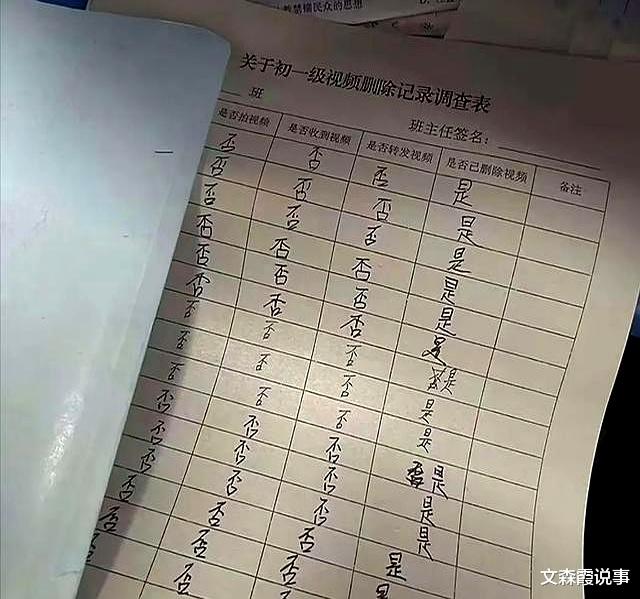 民众的思想
关于初一级视频删除记录调查表
班
班主任签名：
是否拍视频 是否收到视频 是否转发视频 是否已删除视频 备注
否 否 否 是
否 否 否 是
否 否 否 是
否 否 否 是
否 否 否 是
否 否 否 是
否 否 否 是
否 否 否 是
否 否 否 是
否 否 否 是
否 否 否 是
否 否 否 是
否 否 否 是
否 否 否 是
否 否 否
文森霞说事